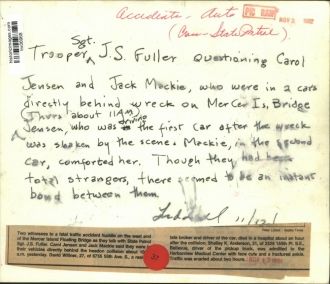 Accidents - Auto
PIC RAN
NOV 2 1982
(Car - State Patrol)
Sgt.
Trooper ^ J.S. Fuller Questioning Carol
Jensen and Jack Mackie, who were in 2 cars
directly behind wreck on Mercer Is, Bridge
Thurs about 11AM
driving
Jensen, who was ^ the first car after the wreck
was shaken by the scene. Mackie, in the second
car, comforted her. Though they had been
total strangers, there seemed to be an instant
bond between them
11/12/
Two witnesses to a fatal traffic accident huddle on the west end
of the Mercer Island Floating Bridge as they talk with State Patrol
Sgt. J.S. Fuller. Carol Jensen and Jack Mackie said they were
their vehicles directly behind the headon collision about
a.m. yesterday. David Willows, 27, of 6755 5th Ave. S., a
tate trucker and driver of the car, died in a hospital about an hour
after the collision. Shelley K. Anderson, 21, of
Bellevue, driver of the pickup truck, was admitted to the
Harborview Medical Center with face cuts and a fractured pelvis.
Traffic was snarled about two hours.
37